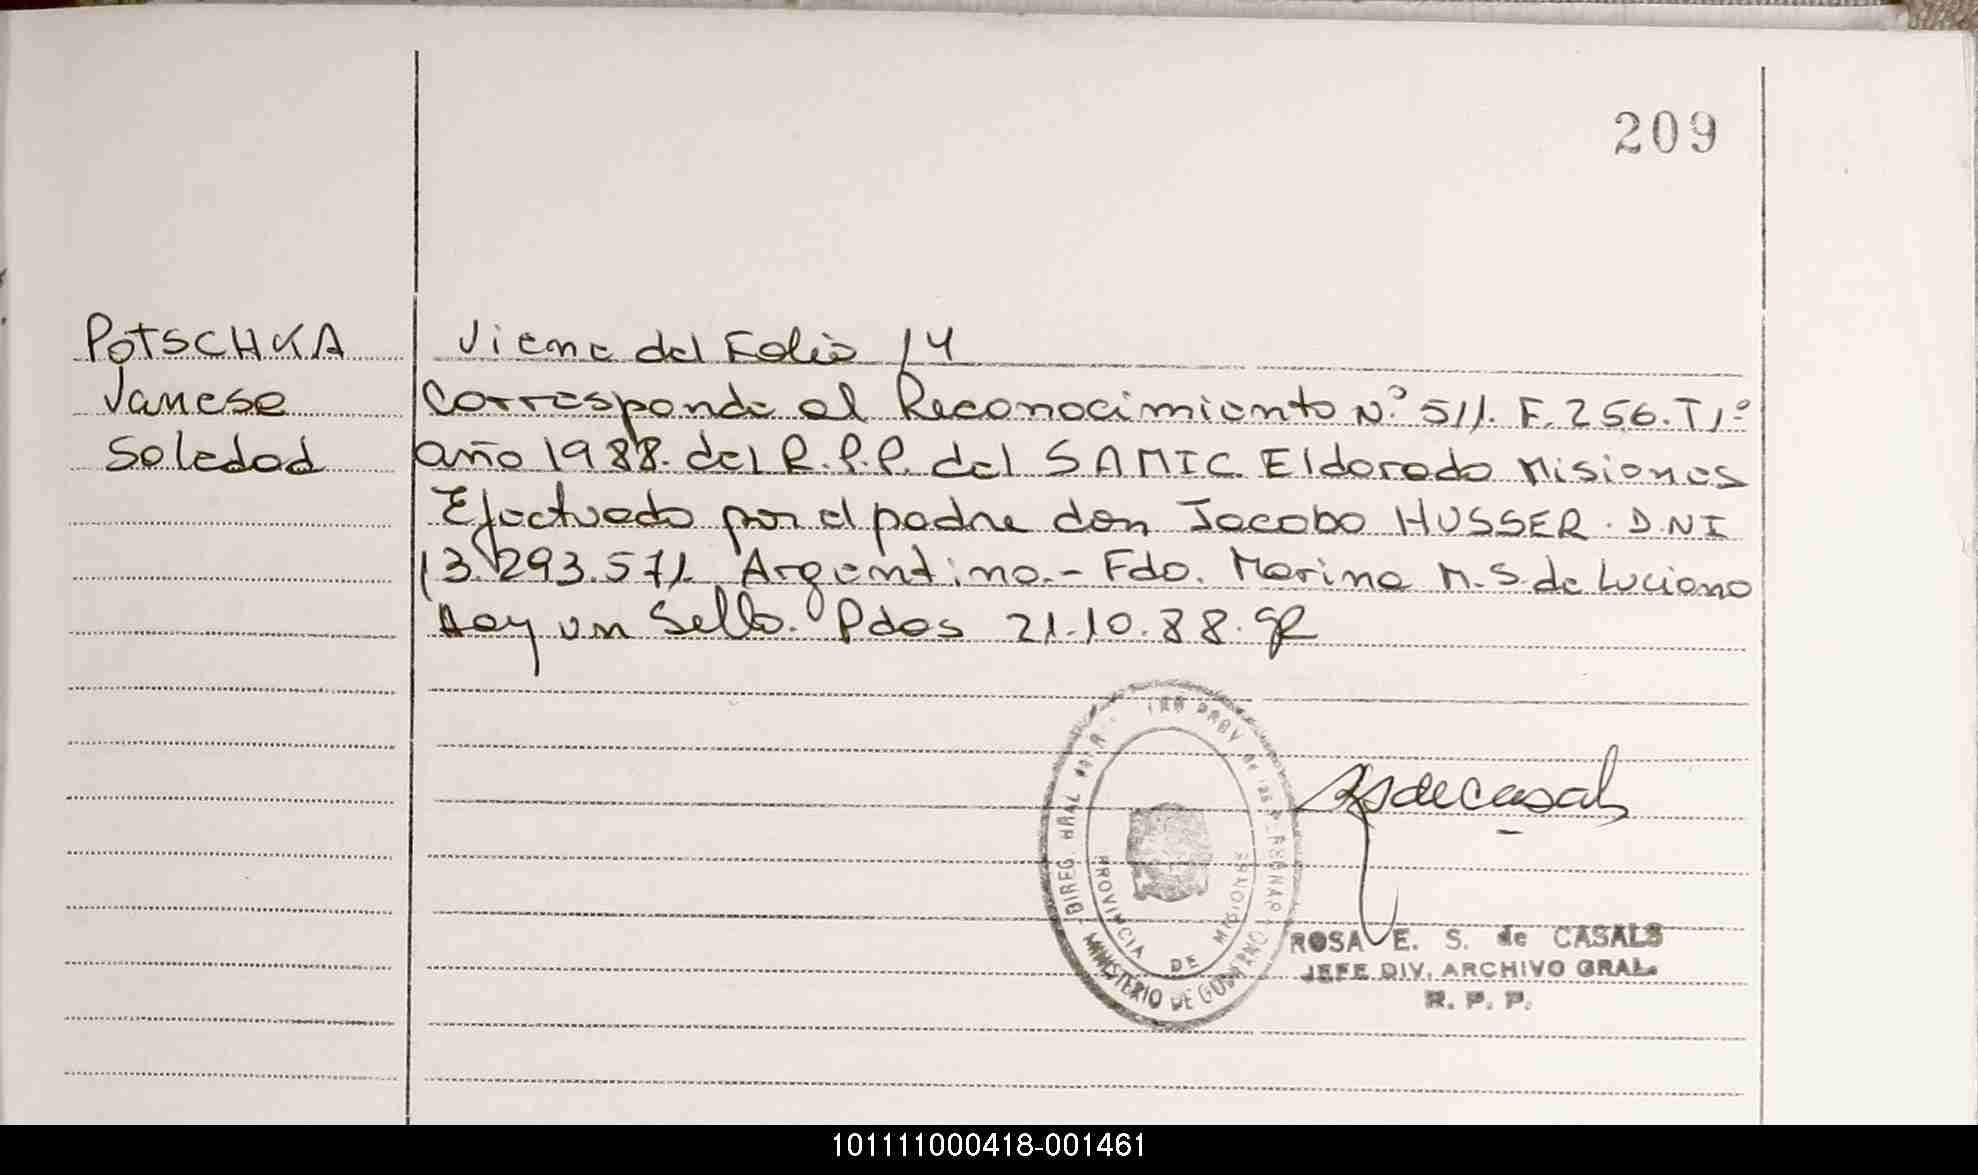 209
POTSCHKA
Vanesa
Soledad
Viene del Folio 14
Corresponde al Reconocimiento N.º 511. F. 256. T 1º
año 1988. del R.P.P. del SAMIC Eldorado Misiones
Efectuado por el padre don Jacobo HUSSER. D.N.I
13.293.571. Argentino.- Fdo. Marina M.S. de Luciano
Hay un Sello. Pdas 21.10.88.
DIREG GRAL
PROV
MINISTERIO DE GOBIERNO
PROVINCIA DE MISIONES
RSdeCasals
ROSA E. S. de CASALS
JEFE DIV. ARCHIVO GRAL.
R. P. P.
101111000418-001461